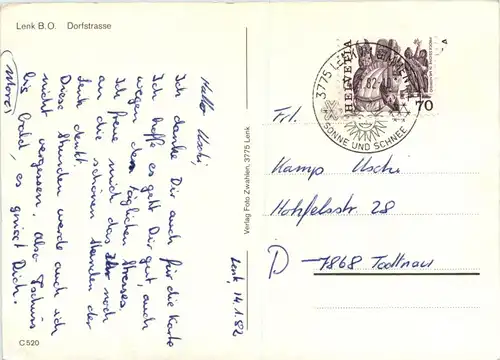 Lenk B.O. Dorfstrasse
Hallo Uschi,
Ich danke Dir auch für die Karte
Ich hoffe es geht Dir gut, auch
wegen dem täglichen Stresses.
Ich freue mich das Ihr noch
an die schönen Stunden der
Lenk denkt.
Diese Stunden werde auch ich
nicht vergessen. Also Tschüss
bis bald, es grüsst Dich.
Lenk, 14.1.82
C 520
Verlag Foto Zwahlen, 3775 Lenk
3775 LENK
SONNE UND SCHNEE
HELVETIA
70
Frl.
Kamp Uschi
Hohfelsstr 28
D - 7868 Todtnau